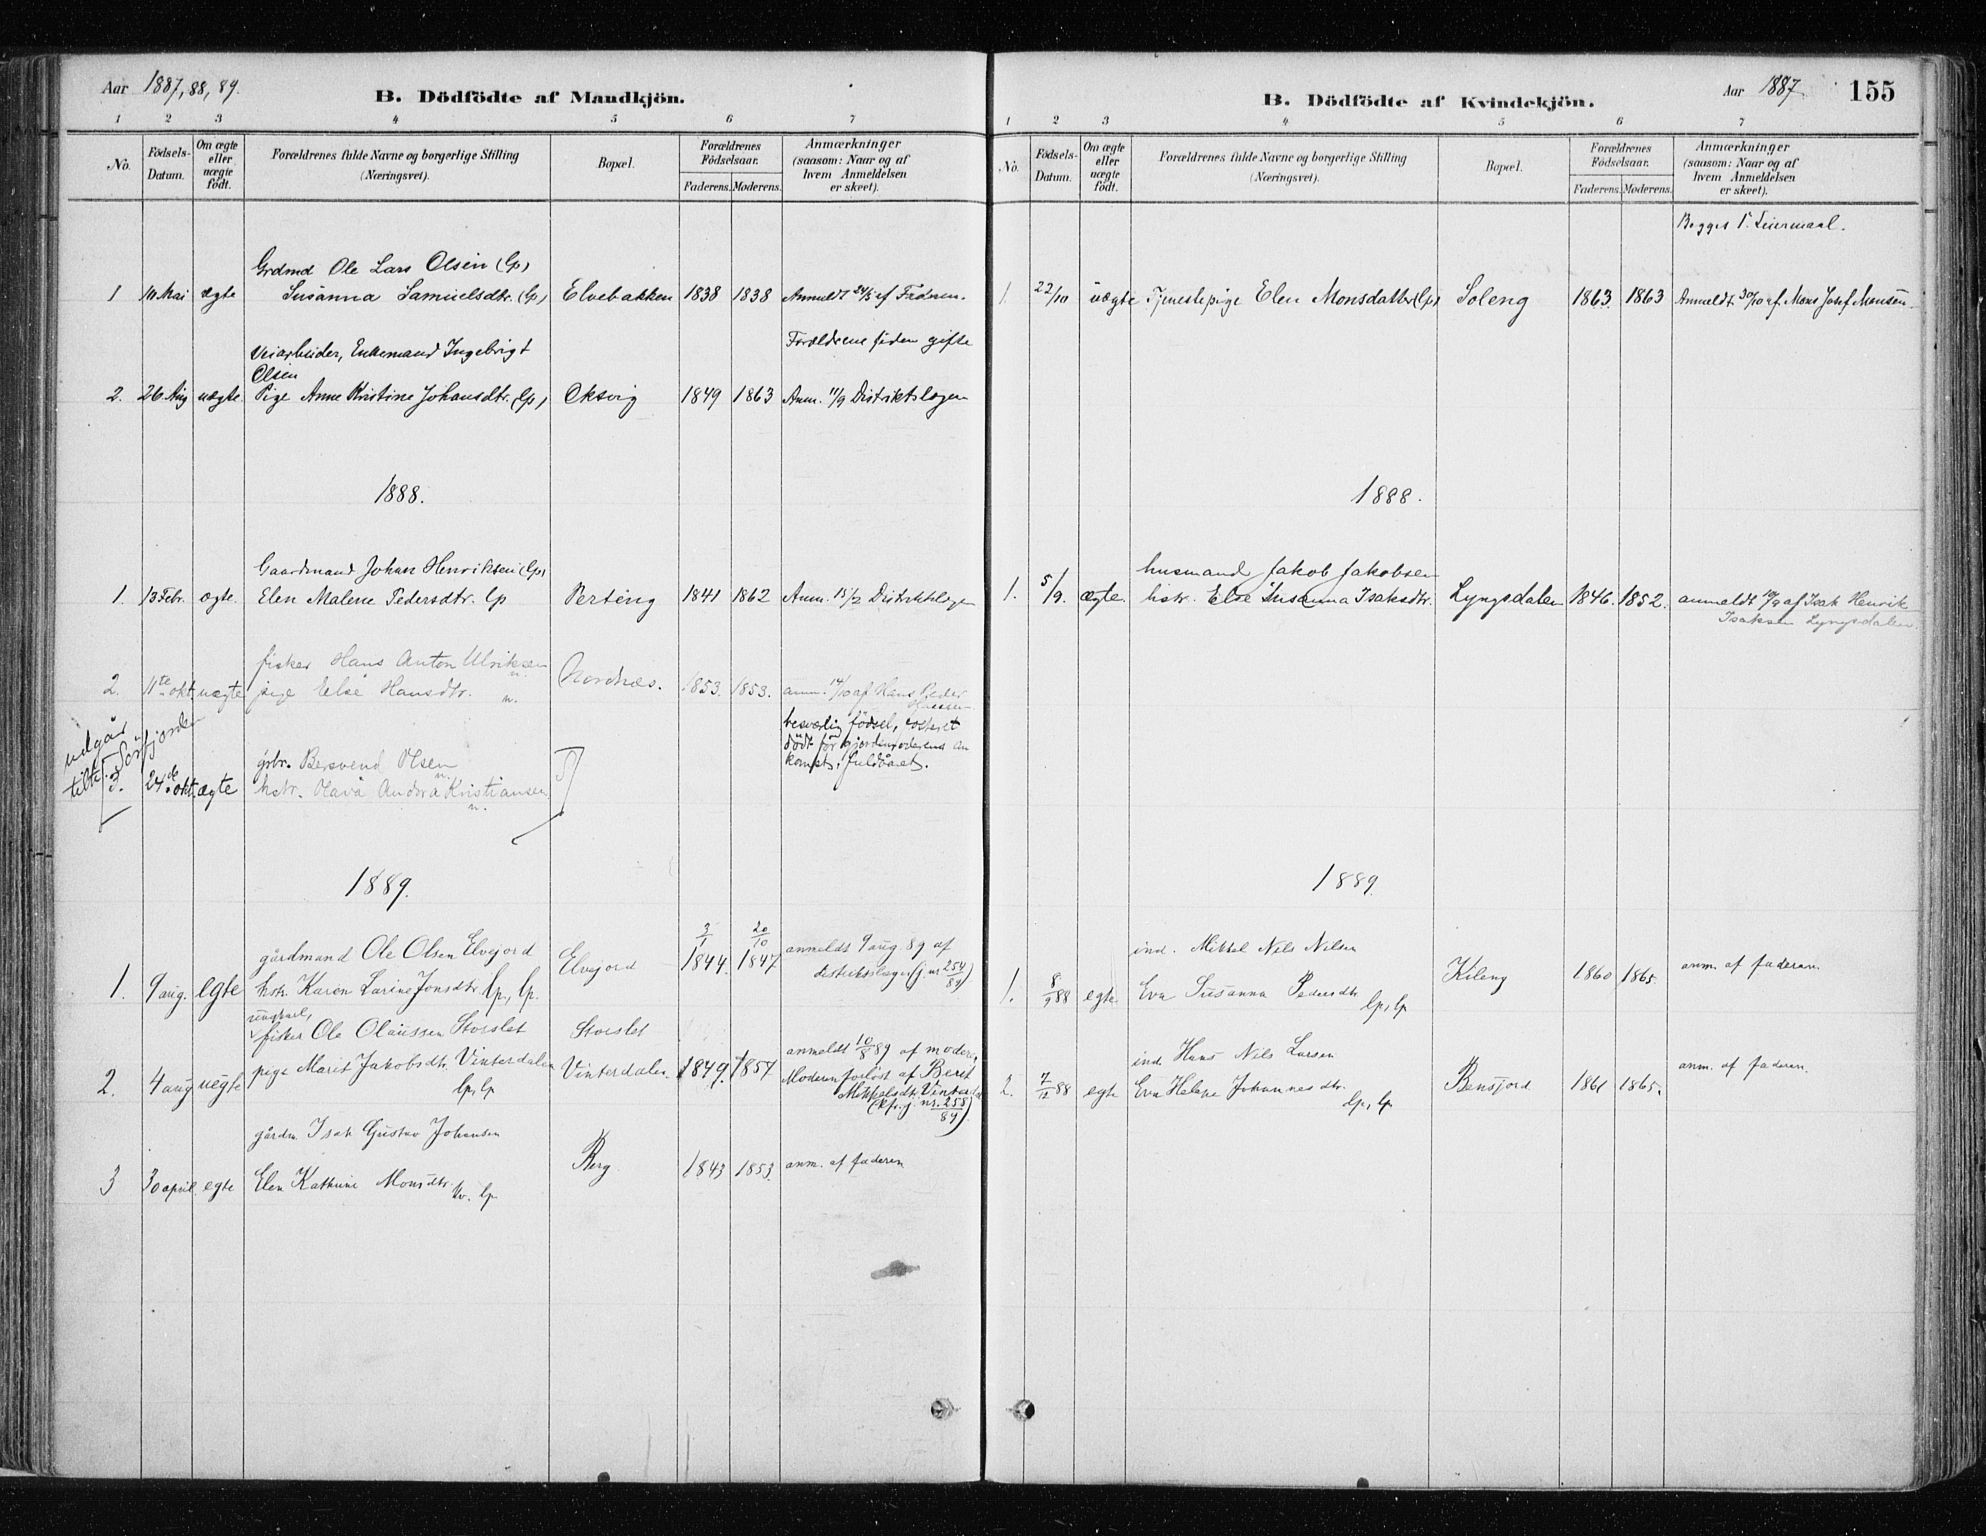 Aar 1887, 88, 89.
B. Dödfödte af Mandkjön.
1 2 3 4 5 6 7
No. Födsels-Datum. Om ægte eller uægte födt. Forældrenes fulde Navne og borgerlige Stilling (Næringsvei). Bopæl. Forældrenes Födselsaar. Faderens. Moderens. Anmærkninger (saasom: Naar og af hvem Anmeldelsen er skeet).
Grdmd Ole Lars Olsen (lp)
1 10 Mai ægte Susanna Samuelsdtr. (lp) Elvebakken 1838 1838 Anmeldt 24/5 af Faderen.
Veiarbeider, Enkemand Ingebrigt Forældrene siden gifte
Olsen
2. 26 Aug uægte. Pige Anne Kristine Johansdtr. (lp) Oksvig 1849 1863 Anm. 11/9 Distriktslægen
1888.
Gaardmand Johan Henriksen (lp)
1. 13 Febr. ægte. Elen Malene Pedersdtr. lp Perteng 1841 1862 Anm. 15/2 Distriktslægen
fisker Hans Anton Ulriksen n.
2. 11te okt. uægte pige Else Hansdtr. n. Nordnæs. 1853. 1853. anm. 14/10 af Hans Peder
Hansen
udgår
tilh. Sörfjorden
besværlig födsel,
dödt för gjordemoderens an
komst; fuldbåret.
grbr. Bersvend Olsen n.
3. 24de okt. ægte hstr. Olava Andora Kristiansen n.
1889.
gårdmand Ole Olsen Elvejord Elvejord 3/1 1844. 20/10 1847 anmeldt 9 aug. 89 af
distriktslægen (j nr 254/89)
1. 9 aug. egte hstr. Karen Larine Jonsdtr. lp, lp.
ungkarl,
fisker Ole Olaussen Storslet Storslet
pige Marit Jakobsdtr. Vinterdalen Vinterdalen 1849. 1857 anmeldt 10/8 89 af moderen
2. 4 aug uegte lp, lp Moderen forlöst af Berit
Mikkelsdtr. Vinterdal
(kfr. j. nr. 258/89)
gårdm. Isak Gustav Johansen
3 30 april egte Elen Kathrine Monsdtr. kv. lp Berg. 1843 1853 anm. af faderen
Aar 1887. 155
B. Dödfödte af Kvindekjön.
1 2 3 4 5 6 7
No. Födsels-Datum. Om ægte eller uægte födt. Forældrenes fulde Navne og borgerlige Stilling (Næringsvei). Bopæl. Forældrenes Födselsaar. Faderens. Moderens. Anmærkninger (saasom: Naar og af hvem Anmeldelsen er skeet).
Begges 1' Leiermaal.
1. 22/10 uægte Tjenestepige Elen Monsdatter (lp) Soleng 1863. 1863 Anmeldt 30/10 af Mons Josef Monsen
1888.
husmand Jakob Jakobsen
1. 5/9. ægte. hstr. Else Susanna Isaksdtr. Lyngsdalen 1846. 1852. anmeldt 10/9 af Isak Henrik
Isaksen Lyngsdalen.
1889.
ind. Mikkel Nils Nilsen
1. 8/9 88 egte. Eva Susanna Pedersdtr lp, lp Kileng 1860 1865. anm. af faderen.
ind. Hans Nils Larsen
2. 7/12 88 egte Eva Helene Johannesdtr. lp, lp Bensjord 1861 1865. anm. af faderen.